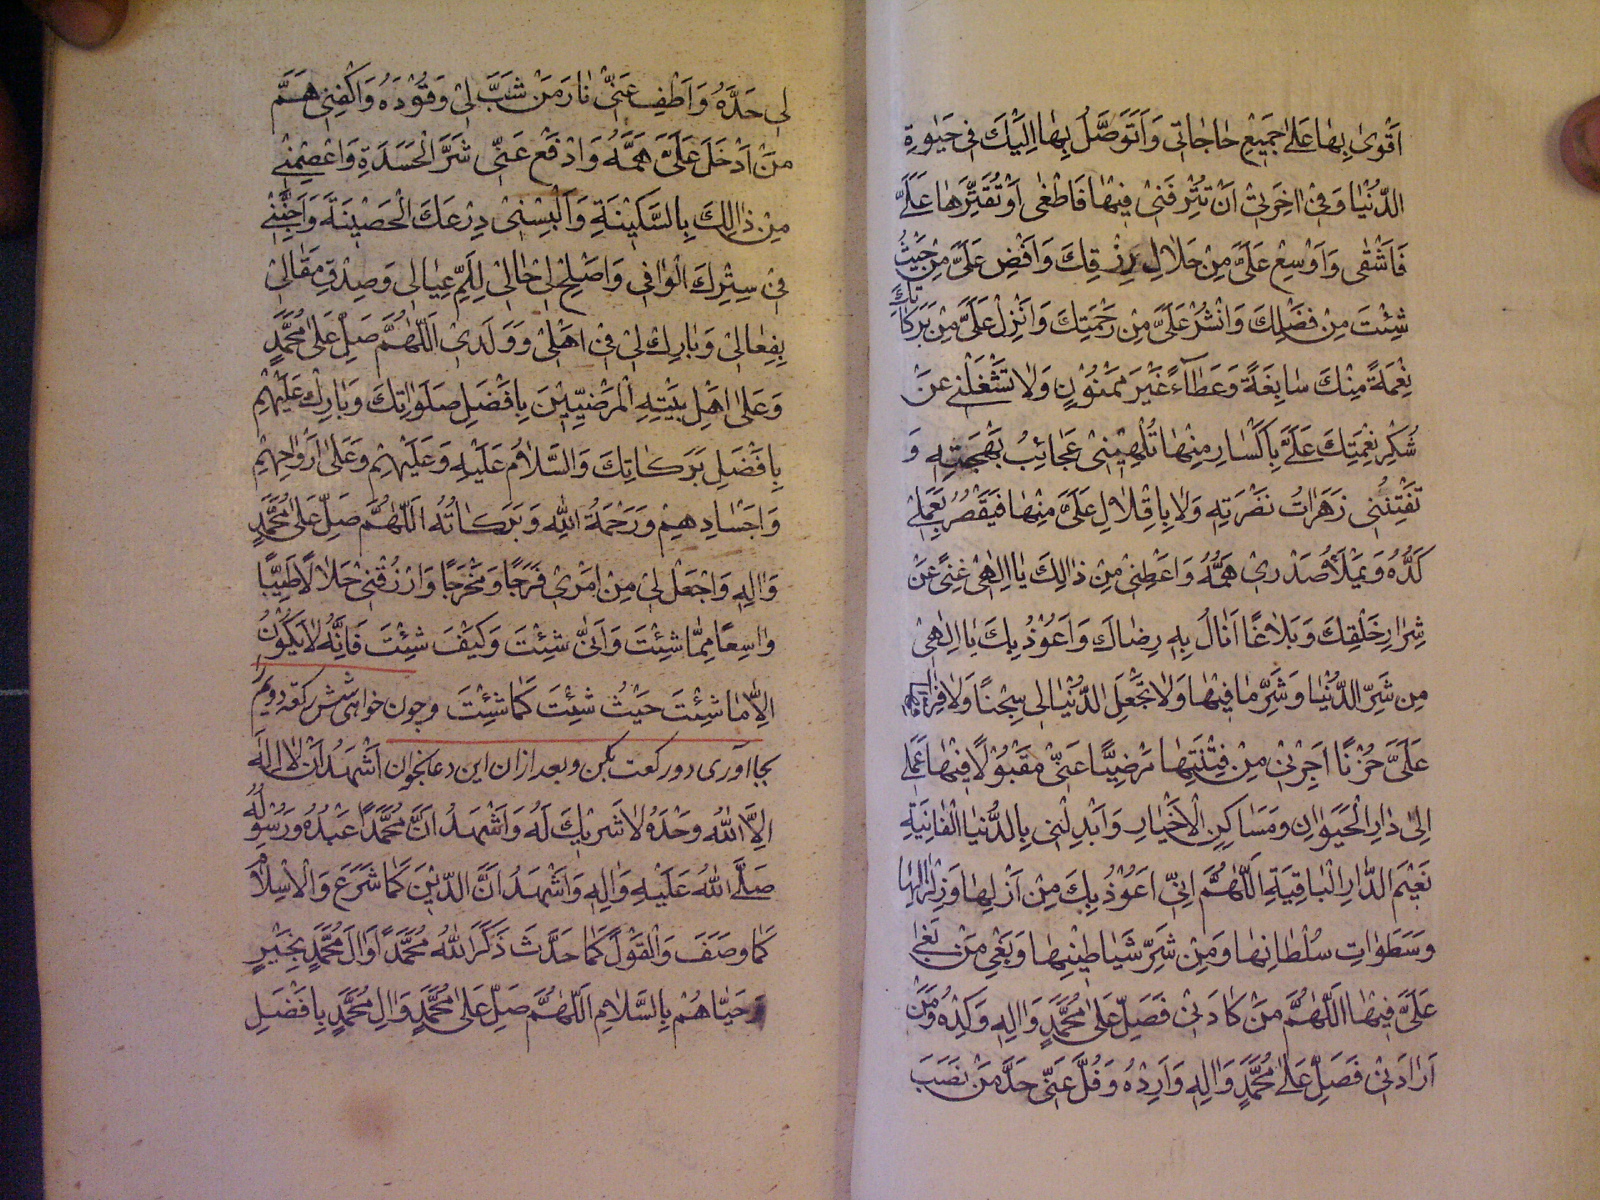 اَقْوىٰ بِهٰا عَلىٰ جَمِيْعِ حٰاجٰاتي وَ اَتَوَصَّلُ بِهٰا اِلَيْكَ فى حَيٰوةِ
الدُّنْيٰا وَفىْ اٰخِرَتىْ اَنْ تُتْرِفَنىْ فِيْهٰا فَاَطْغىٰ اَوْ تُقَتِّرَهٰا عَلَىَّ
فَاَشْقٰى وَاَوْسِعْ عَلَىَّ مِنْ حَلٰالِ رِزْقِكَ وَاَفِضْ عَلَىَّ مِنْ حَيْثُ
شِئْتَ مِنْ فَضْلِكَ وَانْشُرْ عَلَىَّ مِنْ رَحْمَتِكَ وَاَنْزِلْ عَلَىَّ مِنْ بَرَكٰاتِكَ
نِعْمَةً مِنْكَ سٰابِغَةً وَعَطٰآءً غَيْرَ مَمْنُوْنٍ وَلٰا تَشْغَلْنى عَنْ
شُكْرِ نِعْمَتِكَ عَلَىَّ بِاَكْسٰارٍ مِنْهٰا تُلْهِيْنىْ عَجٰائِبُ بَهْجَتِهٖ وَ
تَفْتِنُنى زَهَرٰاتُ نَضْرَتِهٖ وَلٰا بِاِقْلٰالٍ عَلَىَّ مِنْهٰا فَيَقْصُرُ بِعَمَلى
كَدُّهُ وَيَمْلَأُ صَدْرى هَمُّهُ وَاَعْطِنىْ مِنْ ذٰالِكَ يٰا اِلٰهىْ غِنًى عَنْ
شِرٰارِ خَلْقِكَ وَبَلٰاغًا اَنٰالُ بِهٖ رِضٰاكَ وَاَعُوْذُ بِكَ يٰا اِلٰهىْ
مِن شَرِّ الدُّنْيٰا وَشَرِّ مٰا فِيْهٰا وَلٰا تَجْعَلِ الدُّنْيٰا لى سِجْنًا وَلٰا فِرٰاقَهٰا
عَلَىَّ حُزْنًا اَجِرْنىْ مِنْ فِتْنَتِهٰا مَرْضِيًّا عَنّىْ مَقْبُوْلًا فِيْهٰا عَمَلى
اِلىٰ دٰارِ الْحَيَوٰانِ وَمَسٰاكِنِ الْاَخْيٰارِ وَاَبْدِلْنى بِالدُّنْيٰا الْفٰانِيَةِ
نَعِيْمَ الدّٰارِ الْبٰاقِيَةِ اَللّٰهُمَّ اِنّىْ اَعُوْذُ بِكَ مِنْ اَزْلِهٰا وَزِلْزٰالِهٰا
وَسَطَوٰاتِ سُلْطٰانِهٰا وَمِنْ شَرِّ شَيٰاطِيْنِهٰا وَبَغْىِ مَنْ بَغىٰ
عَلَىَّ فِيْهٰا اَللّٰهُمَّ مَنْ كٰادَنىْ فَصَلِّ عَلىٰ مُحَمَّدٍ وَاٰلِهٖ وَكِدْهُ وَمَنْ
اَرٰادَنىْ فَصَلِّ عَلىٰ مُحَمَّدٍ وَاٰلِهٖ وَاَرِدْهُ وَفُلَّ عَنّىْ حَدَّ مَنْ نَصَبَ
لى حَدَّهُ وَاَطْفِ عَنّىْ نٰارَ مَنْ شَبَّ لىْ وَقُوْدَهُ وَاكْفِنىْ هَمَّ
مَنْ اَدْخَلَ عَلَىَّ هَمَّهُ وَادْفَعْ عَنّى شَرَّ الْحَسَدَةِ وَاعْصِمْنىْ
مِنْ ذٰالِكَ بِالسَّكِيْنَةِ وَاَلْبِسْنىْ دِرْعَكَ الْحَصِيْنَةَ وَاَجِنَّنىْ
فىْ سِتْرِكَ الْوٰافى وَاَصْلِحْ لى حٰالىْ لِلَمِّ عِيٰالى وَصِدْقِ مَقٰالىْ
بِفِعٰالىْ وَبٰارِكْ لىْ فىْ اَهْلىْ وَوَلَدىْ اَللّٰهُمَّ صَلِّ عَلىٰ مُحَمَّدٍ
وَعَلىٰ اَهْلِ بَيْتِهِ الْمَرْضِيِّيْنَ بِاَفْضَلِ صَلَوٰاتِكَ وَبٰارِكْ عَلَيْهِمْ
بِاَفْضَلِ بَرَكٰاتِكَ وَالسَّلٰامُ عَلَيْهِ وَعَلَيْهِمْ وَعَلىٰ اَرْوٰاحِهِمْ
وَاَجْسٰادِهِمْ وَرَحْمَةُ اللهِ وَبَرَكٰاتُهُ اَللّٰهُمَّ صَلِّ عَلىٰ مُحَمَّدٍ
وَاٰلِهٖ وَاجْعَلْ لىْ مِنْ اَمْرىْ فَرَجًا وَمَخْرَجًا وَارْزُقْنىْ حَلٰالًا طَيِّبًا
وٰاسِعًا مِمّٰا شِئْتَ وَاَنّىٰ شِئْتَ وَكَيْفَ شِئْتَ فَاِنَّهُ لٰا يَكُوْنُ
اِلّٰا مٰا شِئْتَ حَيْثُ شِئْتَ كَمٰا شِئْتَ وچون خواهى شش ركعة دويم
بجا آورى دو ركعت بكن و بعد ازان اين دعا بخوان اَشْهَدُ اَنْ لٰا اِلٰهَ
اِلَّا اللهُ وَحْدَهُ لٰا شَرِيْكَ لَهُ وَاَشْهَدُ اَنَّ مُحَمَّدًا عَبْدُهُ وَرَسُوْلُهُ
صَلَّى اللهُ عَلَيْهِ وَاٰلِهٖ وَاَشْهَدُ اَنَّ الدّيْنَ كَمٰا شَرَعَ وَالْاِسْلٰامَ
كَمٰا وَصَفَ وَالْقَوْلَ كَمٰا حَدَّثَ ذَكَرَ اللهُ مُحَمَّدًا وَاٰلَ مُحَمَّدٍ بِخَيْرٍ
وَحَيّٰاهُمْ بِالسَّلٰامِ اَللّٰهُمَّ صَلِّ عَلىٰ مُحَمَّدٍ وَاٰلِ مُحَمَّدٍ بِاَفْضَلِ